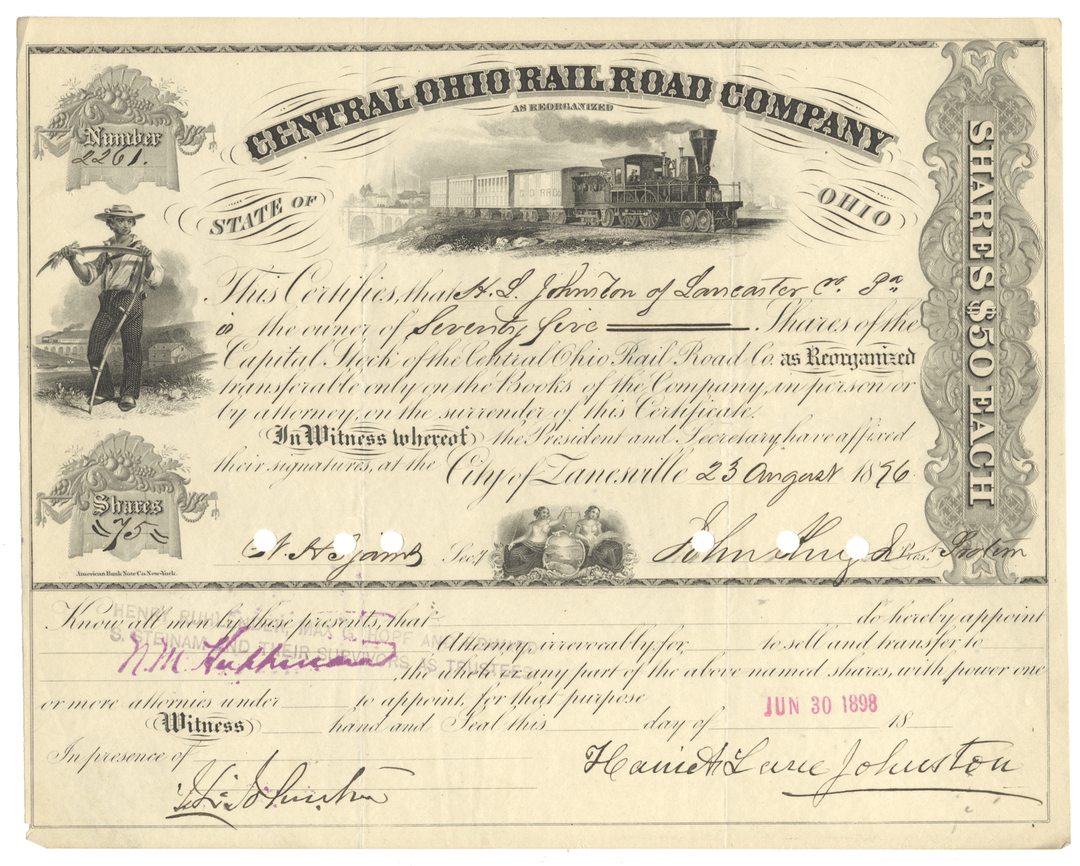 CENTRAL OHIO RAIL ROAD COMPANY
AS REORGANIZED
Number
2261.
STATE OF OHIO
SHARES $50 EACH
This Certifies, that H. L. Johnston of Lancaster Co. Pa
is the owner of Seventy five Shares of the
Capital Stock of the Central Ohio Rail Road Co. as Reorganized
transferable only on the Books of the Company, in person or
by attorney, on the surrender of this Certificate.
In Witness whereof the President and Secretary have affixed
their signatures, at the City of Zanesville 23 August 1876
Shares
75
Secy. John Pres. Protem
American Bank Note Co. New-York.
Know all men by these presents, that do hereby appoint
HENRY MAX G. HOPF AND EDWARD
Attorney, irrevocably, for to sell and transfer to
S. STEINAM AND THEIR SURVIVORS AS TRUSTEES
N. M.
, the whole or any part of the above named shares, with power one
or more attornies under to appoint, for that purpose
JUN 30 1898
Witness hand and Seal this day of 18
In presence of
Harriet Lane Johnston